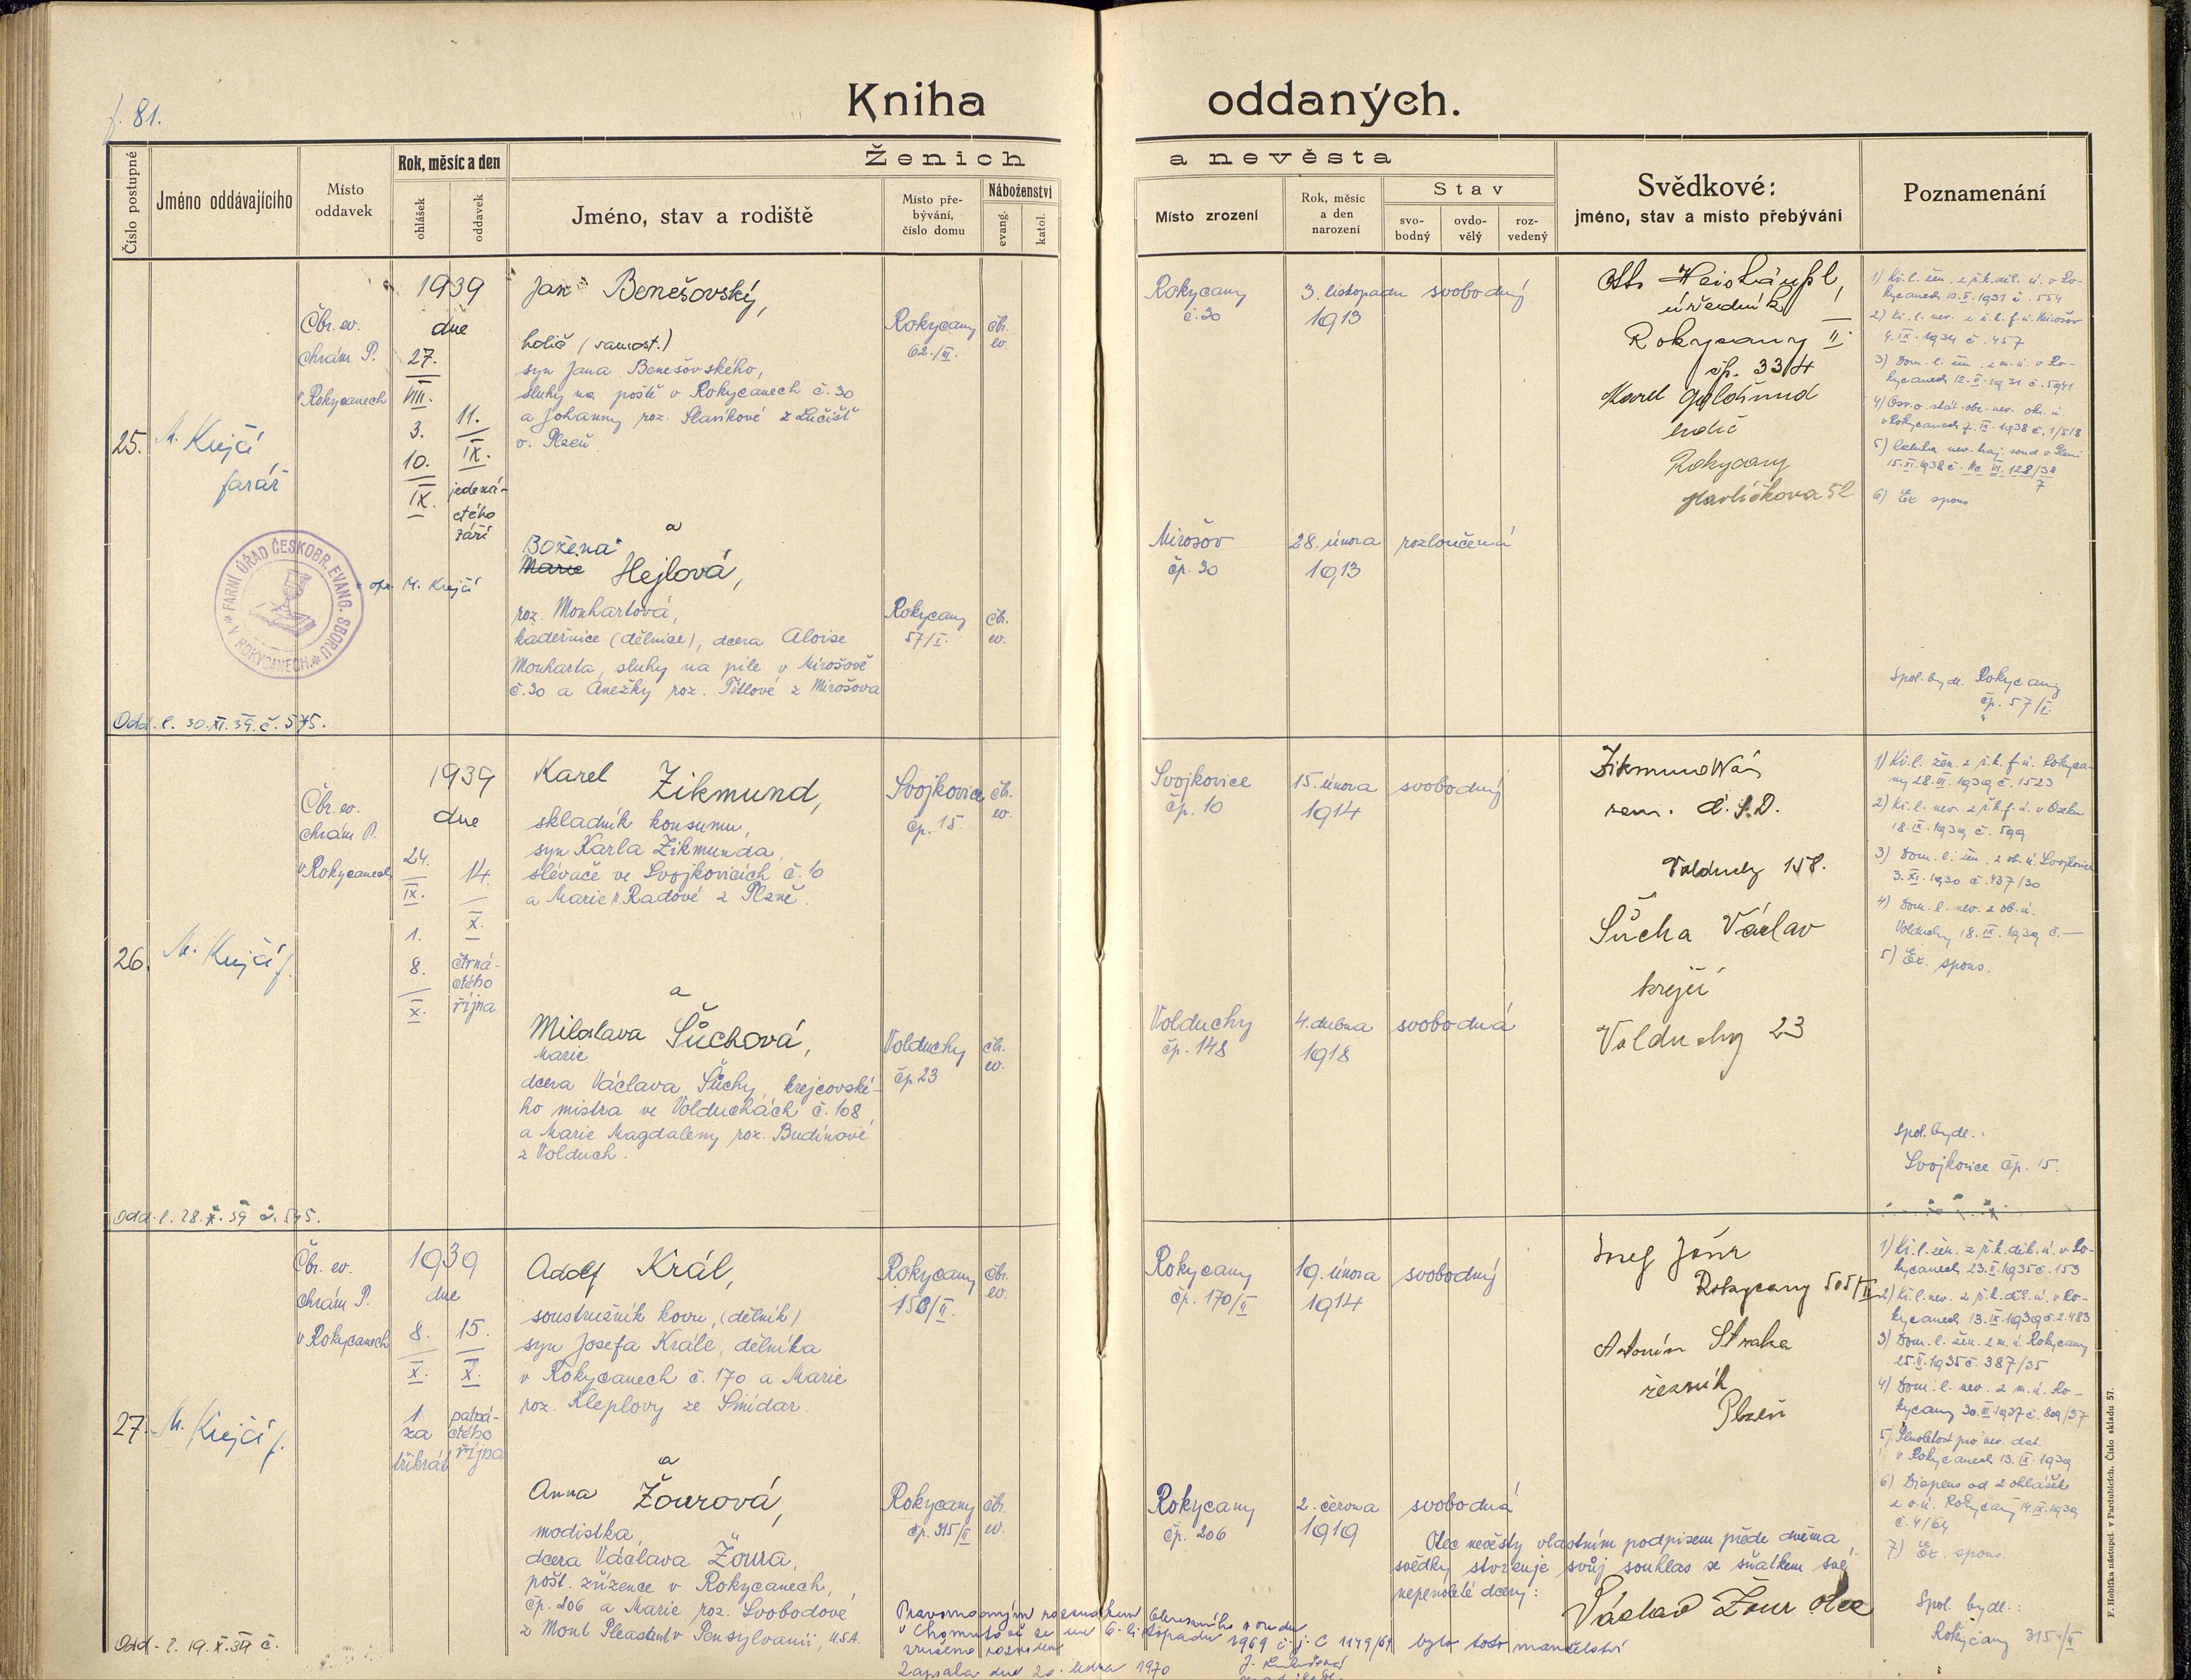 f. 81.
Kniha oddaných.
Číslo postupné
Jméno oddávajícího
Místo
oddavek
Rok, měsíc a den
ohlášek
oddavek
Ženich
Jméno, stav a rodiště
Místo pře-
bývání,
číslo domu
Náboženství
evang.
katol.
a nevěsta
Místo zrození
Rok, měsíc
a den
narození
Stav
svo-
bodný
ovdo-
vělý
roz-
vedený
Svědkové:
jméno, stav a místo přebývání
Poznamenání
25.
M. Krejčí
farář
Čbr. ev.
chrám P.
v Rokycanech
1939
dne
27.
VIII.
3.
10.
IX.
11.
IX.
jedená-
ctého
září
Jan Benešovský,
holič (samost.)
syn Jana Benešovského,
sluhy na poště v Rokycanech č. 30
a Johanny roz. Slavíkové z Lučišť
o. Plzeň
Rokycany
62./III.
čbr.
ev.
a
Božena
Marie Hejlová,
opr. M. Krejčí
roz. Monhartová,
kadeřnice (dělnice), dcera Aloise
Monharta, sluhy na pile v Mirošově
č. 30 a Anežky roz. Títlové z Mirošova
Rokycany
57/I.
čbr.
ev.
FARNÍ ÚŘAD ČESKOBR. EVANG. SBORU
V ROKYCANECH
Odd. l. 30. XI. 39. č. 575.
Rokycany
č. 30
3. listopadu
1913
svobodný
Mirošov
čp. 30
28. února
1913
rozloučená
úředník
Rokycany II
čp. 334
Karel
holič
Rokycany
Havlíčkova 52
1) Kř. l. žen. z ř. k. děk. ú. v Ro-
kycanech 12. V. 1931 č. 554
2) Kř. l. nev. z ř. k. f. ú. Mirošov
4. IX. 1934 č. 457
3) Dom. l. žen. z m. ú. v Ro-
kycanech 12. V. 1931 č. 5941
4) Osv. o stát. obč. nev. okr. ú.
v Rokycanech 7. IX. 1938 č. 1/518
15. XI. 1938 č.
6) Ex spons
Spol. bydl. Rokycany
čp. 57/I.
26.
M. Krejčí f.
Čbr. ev.
chrám P.
v Rokycanech
1939
dne
24.
IX.
1.
8.
X.
14.
X.
čtrná-
ctého
října
Karel Zikmund,
skladník konsumu,
syn Karla Zikmunda,
slévače ve Svojkovicích č. 10
a Marie r. Radové z Plzně.
Svojkovice
čp. 15.
čbr.
ev.
a
Miloslava Šůchová,
Marie
dcera Václava Šůchy, krejčovské-
ho mistra ve Volduchách č. 108
a Marie Magdaleny roz. Budínové
z Volduch.
Volduchy
čp 23
čbr.
ev.
Odd. l. 28. X. 39 č. 545.
Svojkovice
čp. 10
15. února
1914
svobodný
Volduchy
čp. 148
4. dubna
1918
svobodná
Volduchy 158.
Šůcha Václav
krejčí
Volduchy 23
1) Kř. l. žen. z ř. k. f. ú. Rokyca-
ny 28. VI. 1939 č. 1523
2) Kř. l. nev. z ř. k. f. ú. v Oseku
18. IX. 1939 č. 599
3) Dom. l. žen. z ob. ú. Svojkovice
3. XI. 1930 č. 437/30
4) Dom. l. nev. z ob. ú.
Volduchy 18. IX. 1939 č. —
5) Ex. spons.
Spol. bydl.:
Svojkovice čp. 15.
27.
M. Krejčí f.
Čbr. ev.
chrám P.
v Rokycanech
1939
dne
8.
X.
1
za
třikrát
15.
X.
patná-
ctého
října
Adolf Král,
soustružník kovu, (dělník)
syn Josefa Krále, dělníka
v Rokycanech č. 170 a Marie
roz. Kleplovy ze Smidar.
Rokycany
150/II.
čbr.
ev.
a
Anna Žourová,
modistka,
dcera Václava Žoura,
pošt. zřízence v Rokycanech,
čp. 206 a Marie roz. Svobodové
z Mont Pleasant v Pensylvanii, U.S.A.
Rokycany
čp. 315/II
čbr.
ev.
Odd. l. 19. X. 39 č.
Rokycany
čp. 170/II
19. února
1914
svobodný
Rokycany
čp. 206
2. června
1919
svobodná
Rokycany 505/II
Antonín Straka
řezník
Plzeň
Otec nevěsty vlastním podpisem přede dvěma
svědky stvrzuje svůj souhlas se sňatkem své
nepenoleté dcery:
Václav Žour otec
Pravomocným rozsudkem Okresního soudu
v Chomutově ze dne 6. listopadu 1969 č. j. C 1149/69 bylo toto manželství
zrušeno rozvodem
Zapsala dne 20. ledna 1970
1) Kř. l. žen. z ř. k. děk. ú. v Ro-
kycanech 23. II. 1935 č. 153
2) Kř. l. nev. z ř. k. děk. ú. v Ro-
kycanech 13. IX. 1939 č. 2483
3) Dom. l. žen. z m. ú. Rokycany
25. II. 1935 č. 387/35
4) Dom. l. nev. z m. ú. Ro-
kycany 30. III. 1937 č. 809/37
5) Plnoletost pro nev. dat.
v Rokycanech 13. IX. 1939
6) Dispens od 2 ohlášek
z o. ú. Rokycany 14. IX. 1939
č. 4/64
7) Ex. spons
Spol. bydl.:
Rokycany 315./II
F. Hoblíka nástupci v Pardubicích. Číslo skladu 57.